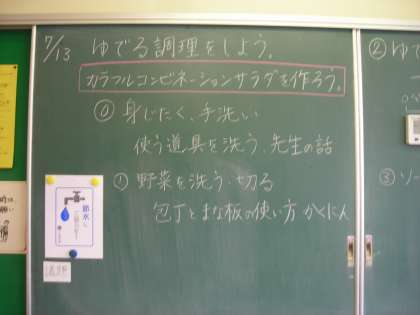 7/13 ゆでる調理をしよう。
カラフルコンビネーションサラダを作ろう。
⓪ 身じたく、手洗い
使う道具を洗う、先生の話
① 野菜を洗う、切る
包丁とまな板の使い方 かくにん
② ゆで
③ ソー
節水に